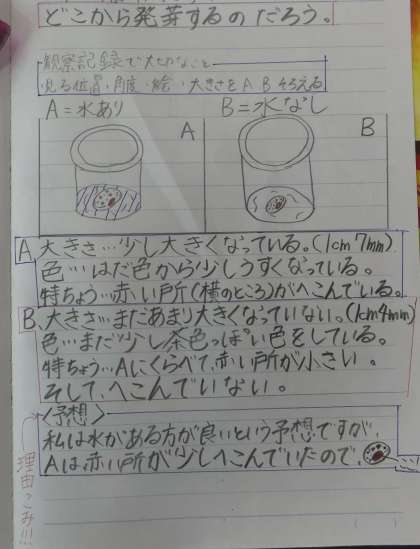 どこから発芽するのだろう。
観察記録で大切なこと
見る位置・角度・絵・大きさをA Bそろえる
A=水あり
B=水なし
A
B
A、大きさ…少し大きくなっている。(1cm7mm)
色…はだ色から少しうすくなっている。
特ちょう…赤い所(横のところ)がへこんでいる。
B、大きさ…まだあまり大きくなっていない。(1cm4mm)
色…まだ少し茶色っぽい色をしている。
特ちょう…Aにくらべて、赤い所が小さい。
そして、へこんでいない。
〈予想〉
私は水がある方が良いという予想ですが、
Aは、赤い所が少しへこんでいたので、
理由こみ!!!